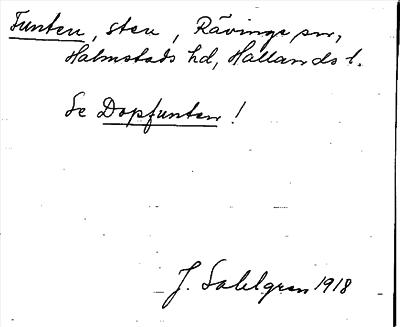 Funten, sten, Rävinge sn,
Halmstads hd, Hallands l.
Se Dopfunten!
J. Sahlgren 1918